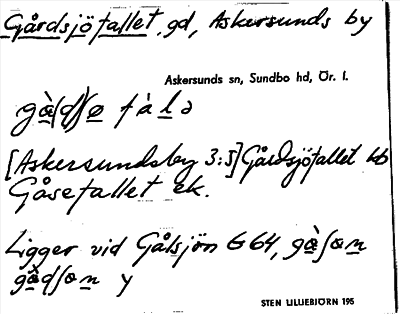 Gårdsjöfallet, gd, Askersunds by
Askersunds sn, Sundbo hd, Ör. l.
[Askersundsby 3:5] Gårdsjöfallet kb
Gåsefallet ek.
Ligger vid Gålsjön G 64,
STEN LILLIEBJÖRN 195